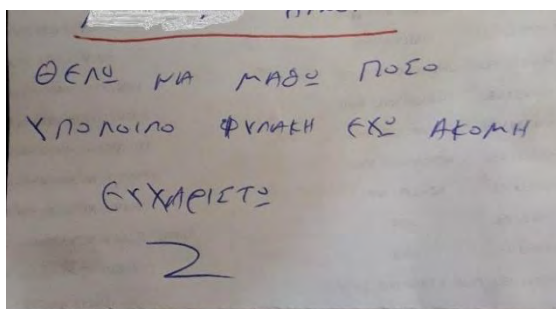 ΘΕΛΩ ΝΑ ΜΑΘΩ ΠΟΣΟ
ΥΠΟΛΟΙΠΟ ΦΥΛΑΚΗ ΕΧΩ ΑΚΟΜΗ
ΕΥΧΑΡΙΣΤΩ